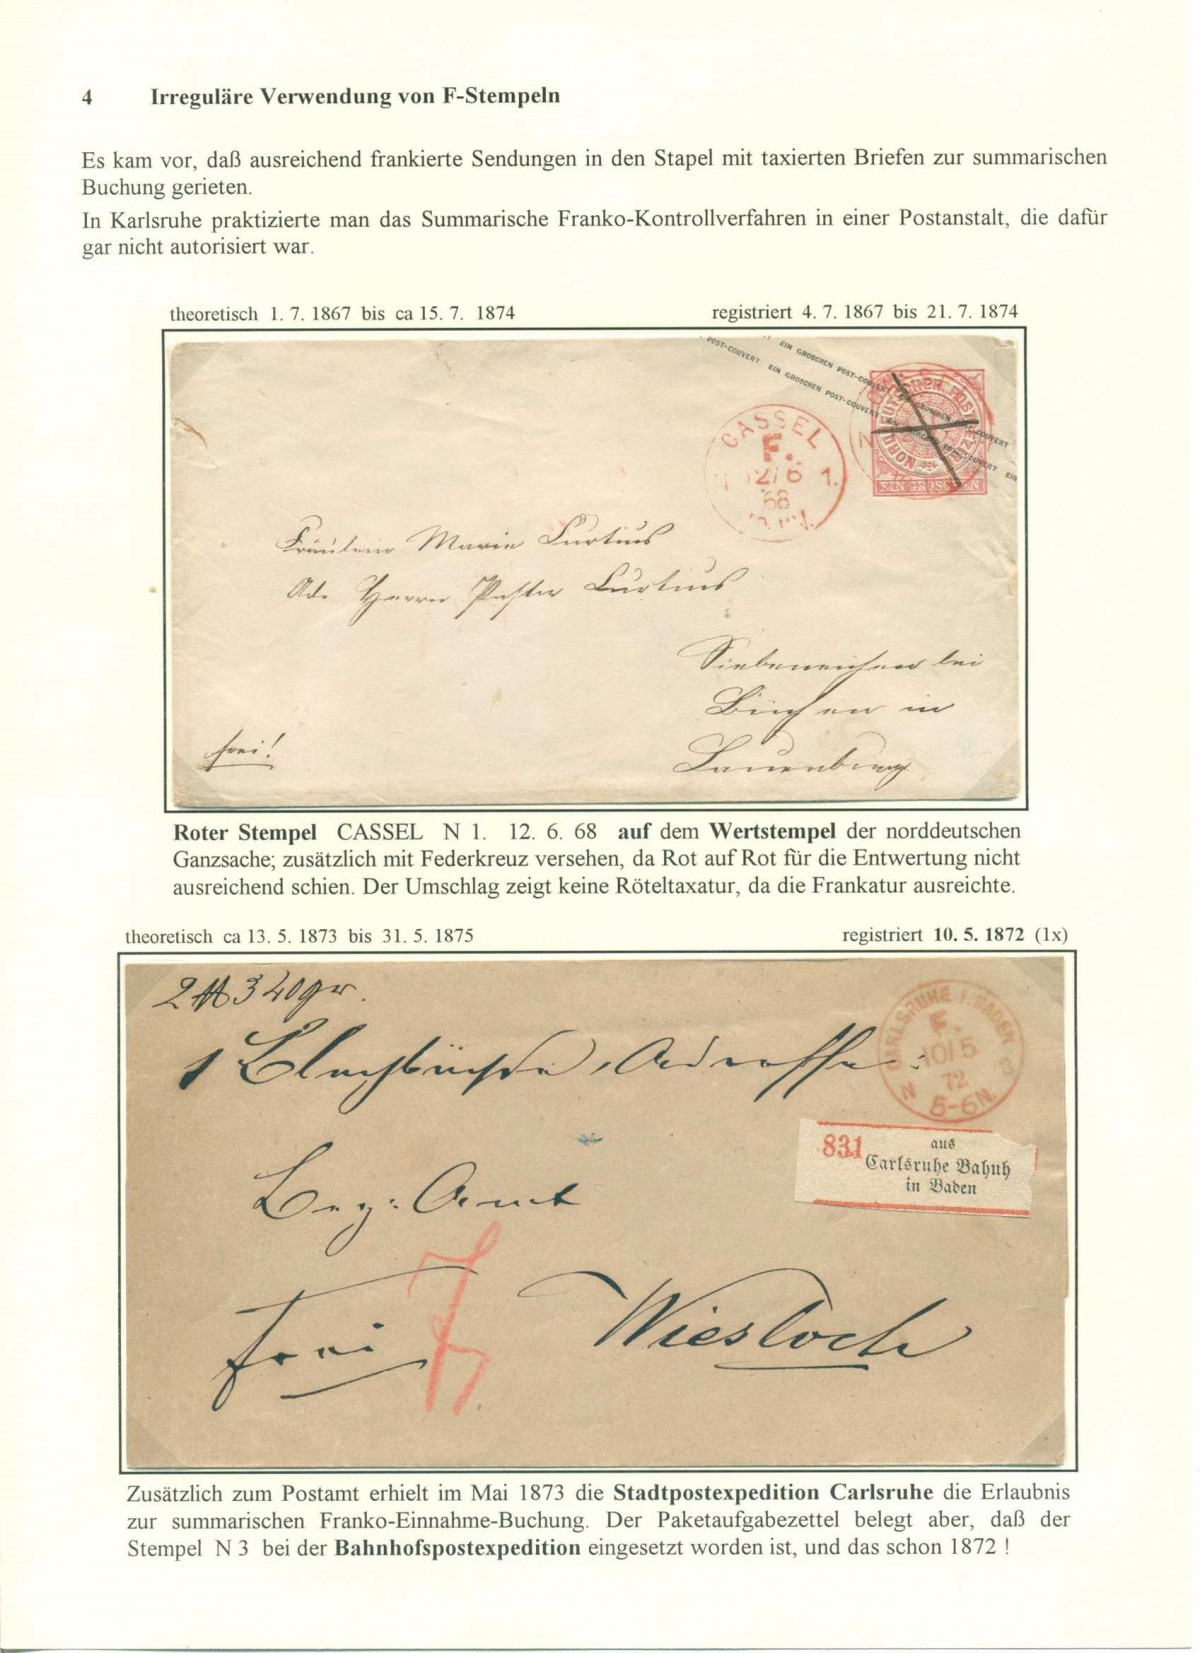 4 Irreguläre Verwendung von F-Stempeln
Es kam vor, daß ausreichend frankierte Sendungen in den Stapel mit taxierten Briefen zur summarischen
Buchung gerieten.
In Karlsruhe praktizierte man das Summarische Franko-Kontrollverfahren in einer Postanstalt, die dafür
gar nicht autorisiert war.
theoretisch 1. 7. 1867 bis ca 15. 7. 1874 registriert 4. 7. 1867 bis 21. 7. 1874
POST-COUVERT EIN GROSCHEN POST-COUVERT
EIN GROSCHEN POST-COUVERT
NORDDEUTSCHER POSTBEZIRK
EIN GROSCHEN
CASSEL
F.
12/6 1.
68
Fräulein Marie Curtius
Adr. Herrn Pastor Curtius
Siebeneichen bei
Büchen in
Lauenburg
frei!
Roter Stempel CASSEL N 1. 12. 6. 68 auf dem Wertstempel der norddeutschen
Ganzsache; zusätzlich mit Federkreuz versehen, da Rot auf Rot für die Entwertung nicht
ausreichend schien. Der Umschlag zeigt keine Röteltaxatur, da die Frankatur ausreichte.
theoretisch ca 13. 5. 1873 bis 31. 5. 1875 registriert 10. 5. 1872 (1x)
CARLSRUHE I. BADEN
F.
10/5
72
N 3
5-6N.
831 aus
Carlsruhe Bahnh
in Baden
Bez: Amt
frei Wiesloch
Zusätzlich zum Postamt erhielt im Mai 1873 die Stadtpostexpedition Carlsruhe die Erlaubnis
zur summarischen Franko-Einnahme-Buchung. Der Paketaufgabezettel belegt aber, daß der
Stempel N 3 bei der Bahnhofspostexpedition eingesetzt worden ist, und das schon 1872 !